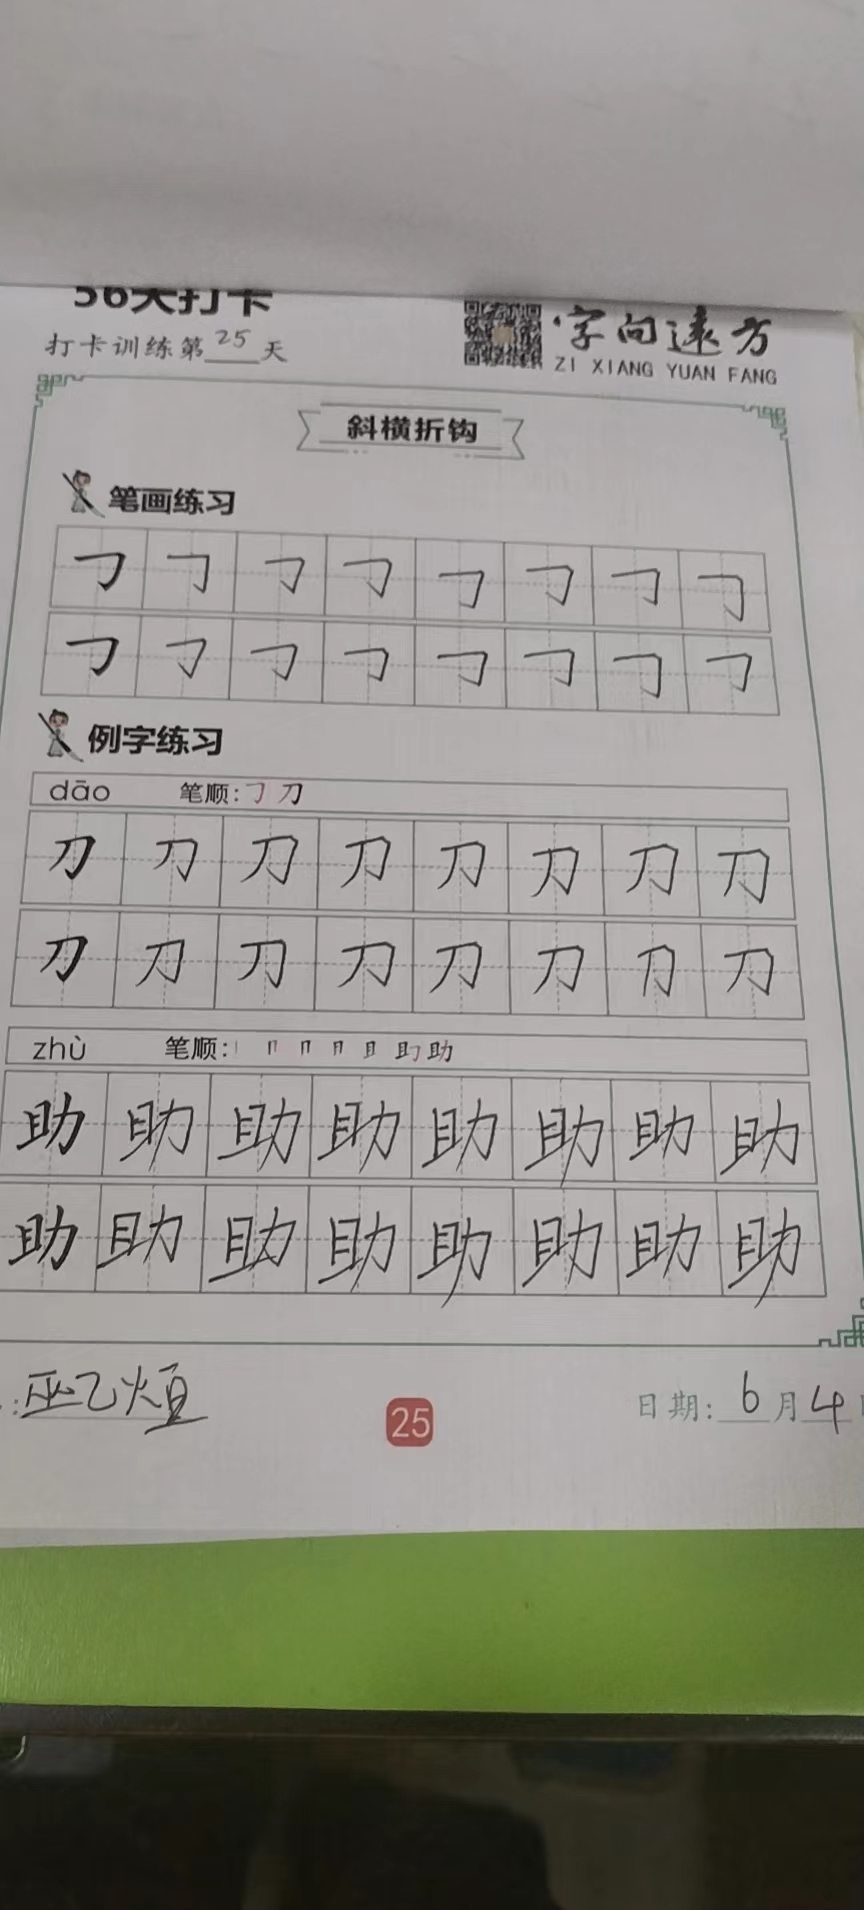 56天打卡
打卡训练第25天
字向远方
ZI XIANG YUAN FANG
斜横折钩
笔画练习
㇆ ㇆ ㇆ ㇆ ㇆ ㇆ ㇆ ㇆
㇆ ㇆ ㇆ ㇆ ㇆ ㇆ ㇆ ㇆
例字练习
dāo 笔顺:㇆ 刀
刀 刀 刀 刀 刀 刀 刀 刀
刀 刀 刀 刀 刀 刀 刀 刀
zhù 笔顺: 助
助 助 助 助 助 助 助 助
助 助 助 助 助 助 助 助
: 巫乙
25
日期: 6月4日